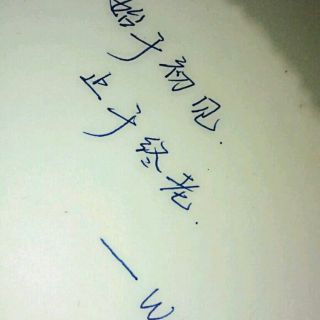 始于初见.
止于终老.
—W